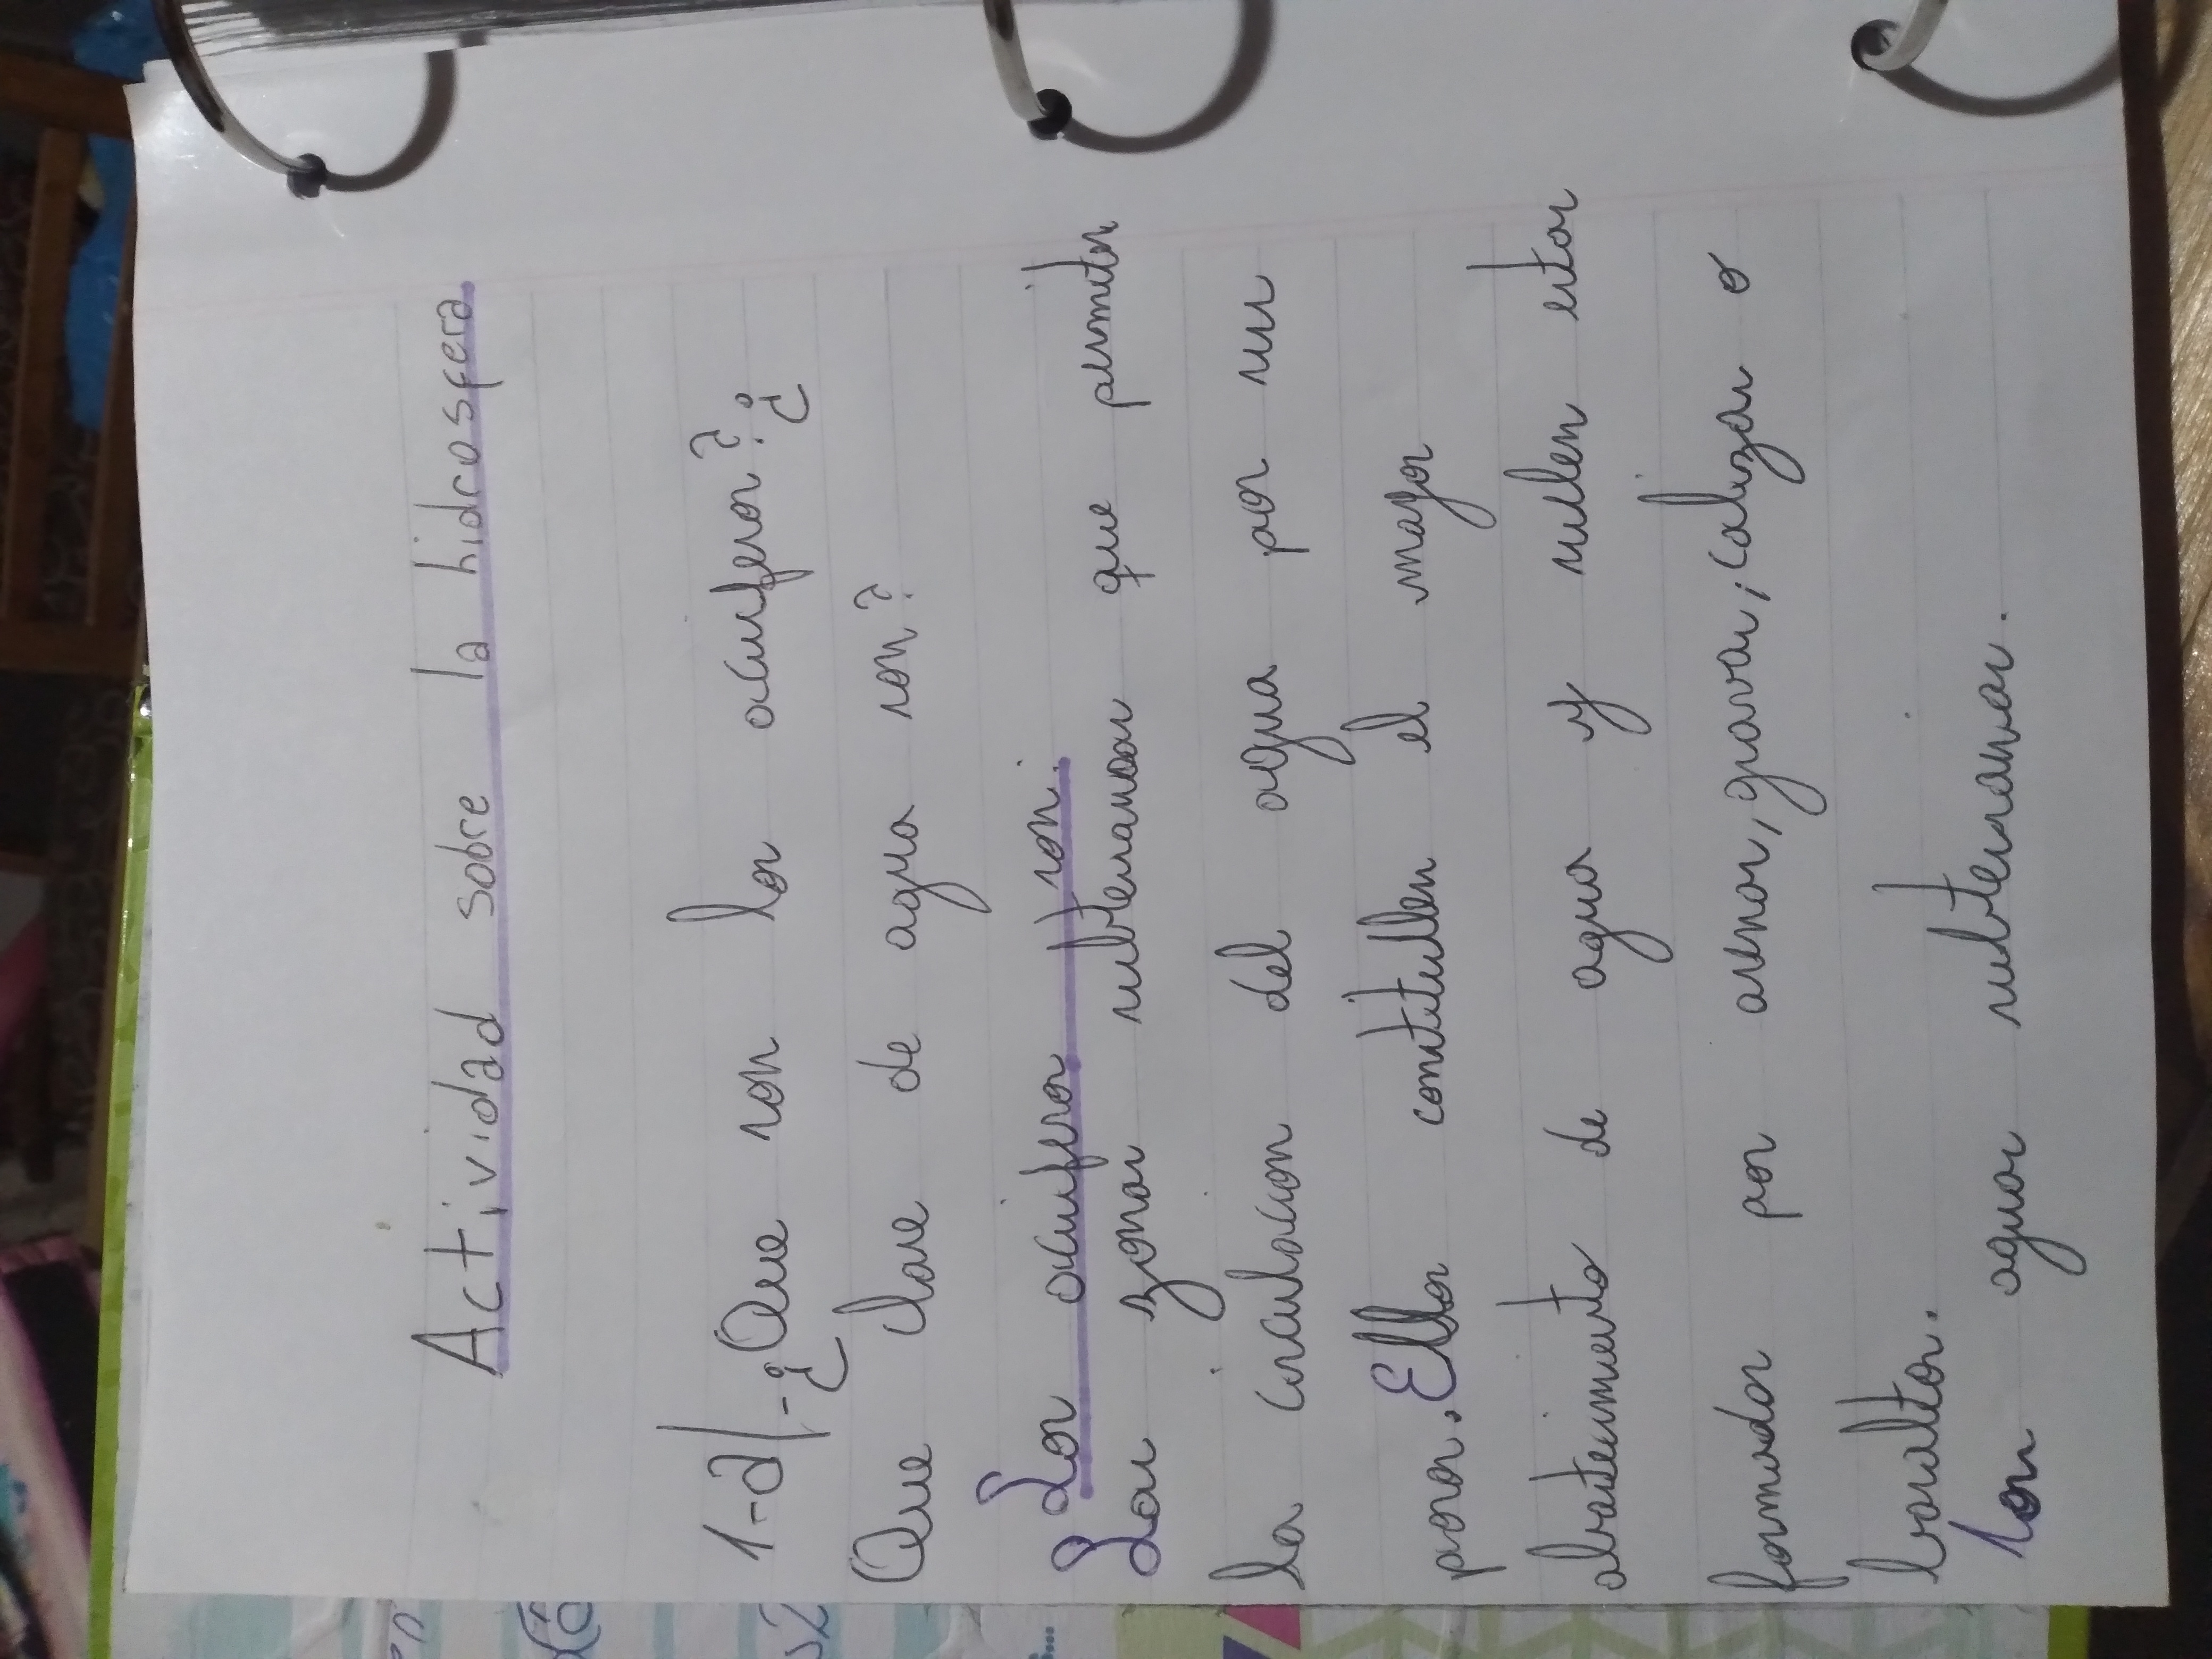 Actividad sobre la hidrosfera.
1-a)-¿Que son los acuiferos? ¿
Que clase de agua son?
Los acuiferos son:
Las zonas subterraneas que permiten
la circulacion del agua por sus
poros. Ellos constitullen el mayor
abastecimiento de agua y suelen estar
formados por arenas, gravas, calizas o
basaltos.
Son aguas subterraneas.